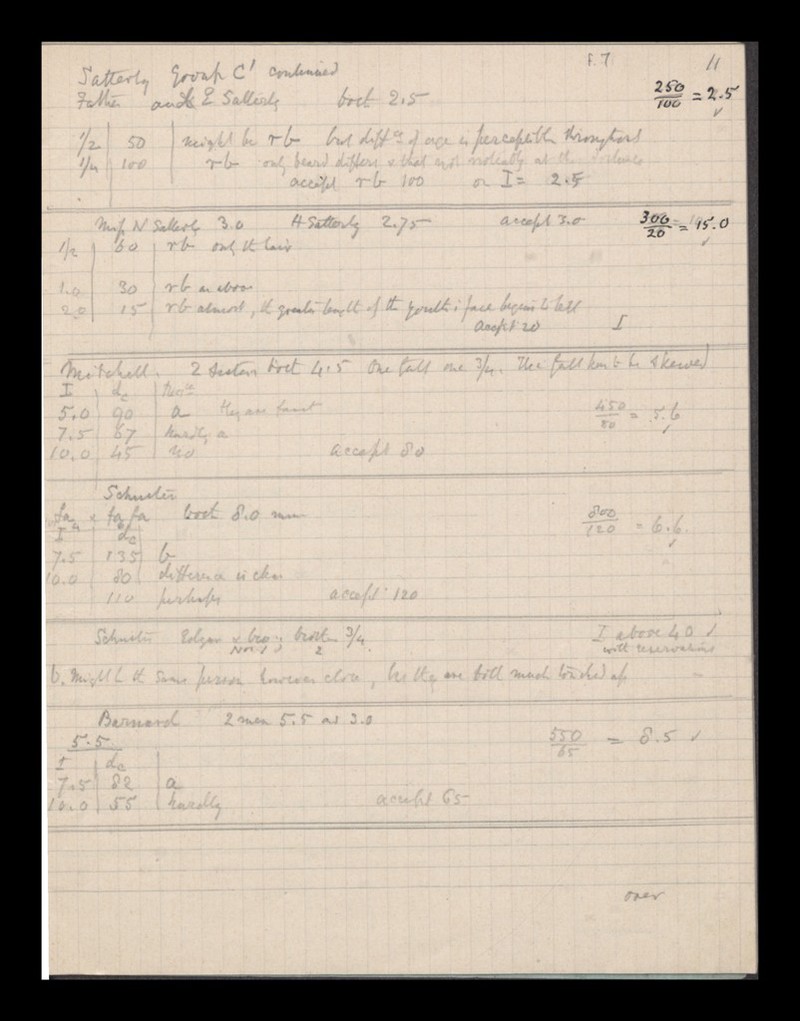 F. 7 11
Satterly Group C' continued
Father and E Satterly both 2.5 250/100 = 2.5 ✓
1/2 50 might be rb but diffce of age is perceptible throughout
1/4 100 rb only beard differs & that not noticeably at the distance
accept rb 100 or I = 2.5
Miss N Satterly 3.0 H Satterly 2.75 accept 3.0 300/20 = 15.0 ✓
1/2 60 rb only the hair
1.0 30 rb as above
2.0 15 rb almost, the greater length of the youth's face begins to tell
accept 20 I
Mitchell. 2 sisters both 4.5 One full one 3/4. The full has to be skewed
I dc
5.0 90 a they are faint 450/80 = 5.6 ✓
7.5 67 hardly a
10.0 45 no accept 80
Schuster
fa & fa fa both 8.0 mm 800/120 = 6.6 ✓
I dc
7.5 135 b
10.0 80 difference is clear
110 perhaps accept 120
Schuster Edgar & bro; brother 3/4. I above 40 ✓
No. 1 2 with reservations
b. Might be the same person however close, but they are both much touched up –
Barnard 2 men 5.5 and 3.0
5.5 550/65 = 8.5 ✓
I dc
7.5 82 a
10.0 55 hardly accept 65
over